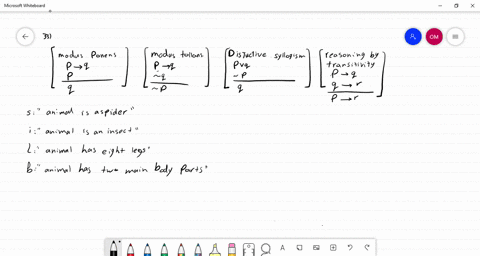 Microsoft Whiteboard
OM
35)
modus Ponens
P→q
P
q
modus tollens
P→q
~q
~P
Disjuctive syllogism
Pvq
~P
q
reasoning by
transitivity
P→q
q→r
P→r
s: "animal is aspider"
i: "animal is an insect"
l: "animal has eight legs"
b: "animal has two main body parts"